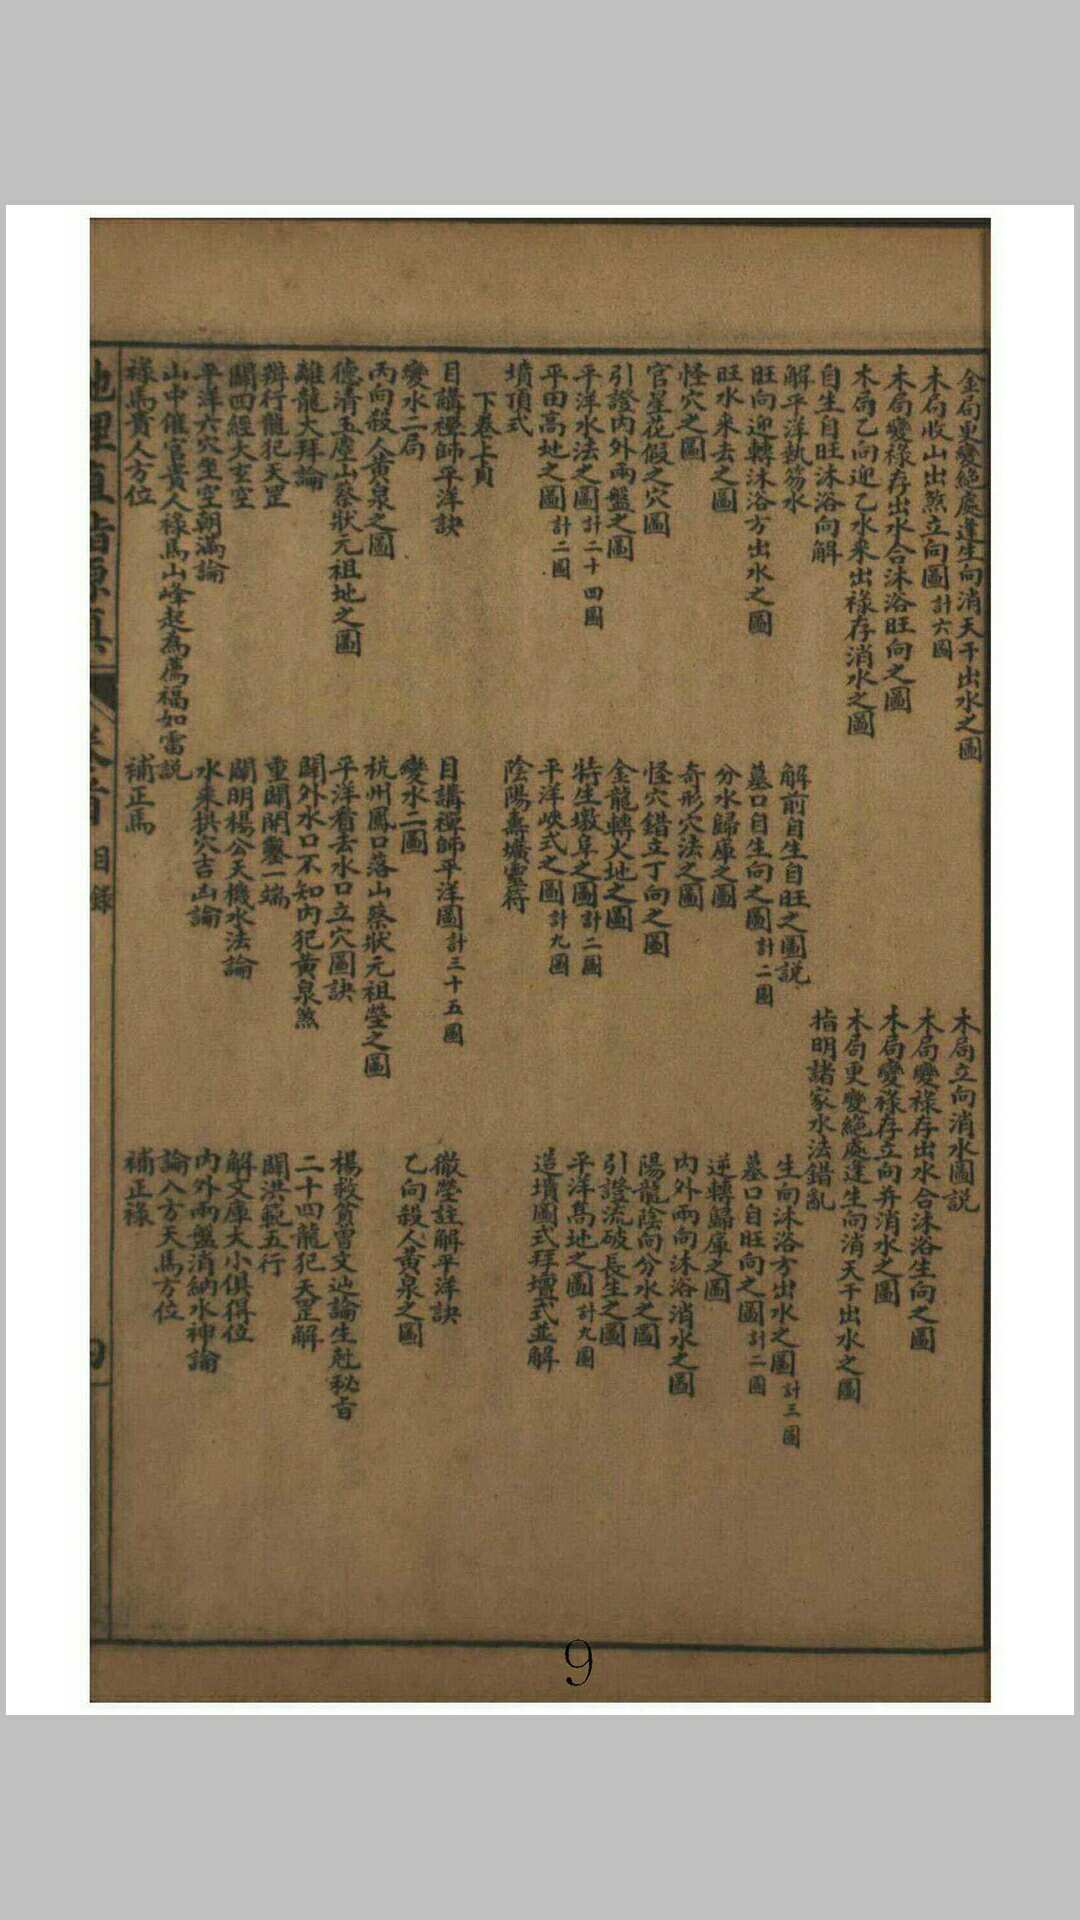 金局更變絕處逢生向消天干出水之圖
木局立向消水圖説
木局收山出煞立向圖計六圖
木局變祿存出水合沐浴生向之圖
木局變祿存出水合沐浴旺向之圖
木局變祿存立向弁消水之圖
木局乙向迎乙水來出祿存消水之圖
木局更變絕處逢生向消天干出水之圖
自生自旺沐浴向解
指明諸家水法錯亂
解平洋執笏水
解前自生自旺之圖説
生向沐浴方出水之圖計三圖
旺向迎轉沐浴方出水之圖
墓口自生向之圖計二圖
墓口自旺向之圖計二圖
旺水來去之圖
分水歸庫之圖
逆轉歸庫之圖
怪穴之圖
奇形穴法之圖
內外兩向沐浴消水之圖
官星花假之穴圖
怪穴錯立丁向之圖
陽龍陰向分水之圖
引證內外兩盤之圖
金龍轉火地之圖
引證流破長生之圖
平洋水法之圖計二十四圖
特生墩阜之圖計二圖
平洋高地之圖計九圖
平田高地之圖計二圖
平洋峽式之圖計九圖
造墳圖式拜壇式並解
墳頂式
陰陽壽壙靈符
下卷上頁
目講禪師平洋訣
目講禪師平洋圖計三十五圖
徹瑩註解平洋訣
變水二局
變水二圖
乙向殺人黃泉之圖
丙向殺人黃泉之圖
杭州鳳口落山蔡狀元祖瑩之圖
德清玉塵山蔡狀元祖地之圖
平洋看去水口立穴圖訣
楊救貧曾文辿論生尅秘旨
離龍大拜論
闢外水口不知內犯黃泉煞
二十四龍犯天罡解
辨行龍犯天罡
重闢開鑿一端
闢洪範五行
闢四經大玄空
闢明楊公天機水法論
解文庫大小俱得位
平洋六穴坐空朝滿論
水來拱穴吉凶論
內外兩盤消納水神論
山中催官貴人祿馬山峰起為廕福如雷説
論八方天馬方位
祿馬貴人方位
補正馬
補正祿
地理直指原真
卷首
目錄
9